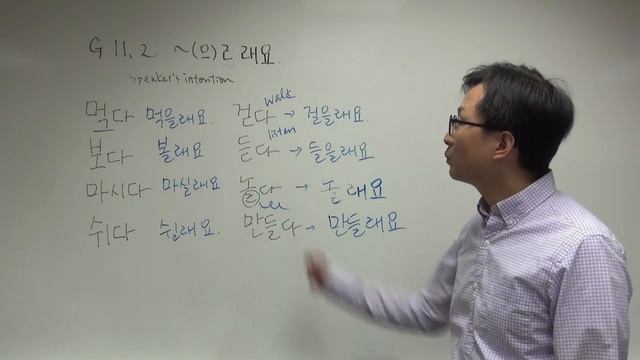 G 11.2 ~(으)ㄹ래요.
speaker's intention
먹다 먹을래요. 걷다 walk → 걸을래요.
보다 볼래요 듣다 listen → 들을래요
마시다 마실래요 놀다 → 놀래요
쉬다 쉴래요. 만들다 → 만들래요